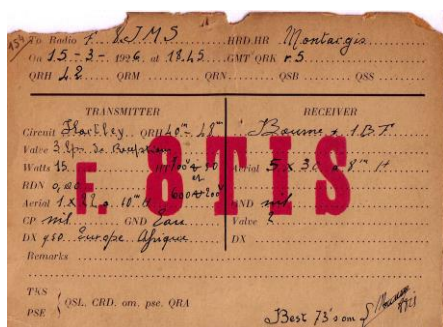 154
To Radio F 8 JMS HRD HR Montargis
On 15-3-1926 at 18.45 GMT QRK r5
QRH 42 QRM QRN QSB QSS
TRANSMITTER
Circuit Hartley QRH 40m-48m
Valve 3
Watts 15
RDN 0,
Aerial 1 x
CP nil GND Eau
DX qso Europe. Afrique
Remarks
RECEIVER
Bourne + 1BF
Aerial 5 x 30 8m H
GND nil
Valve 2
DX
F. 8TIS
TKS
PSE
QSL. CRD. om. pse. QRA
Best 73's om